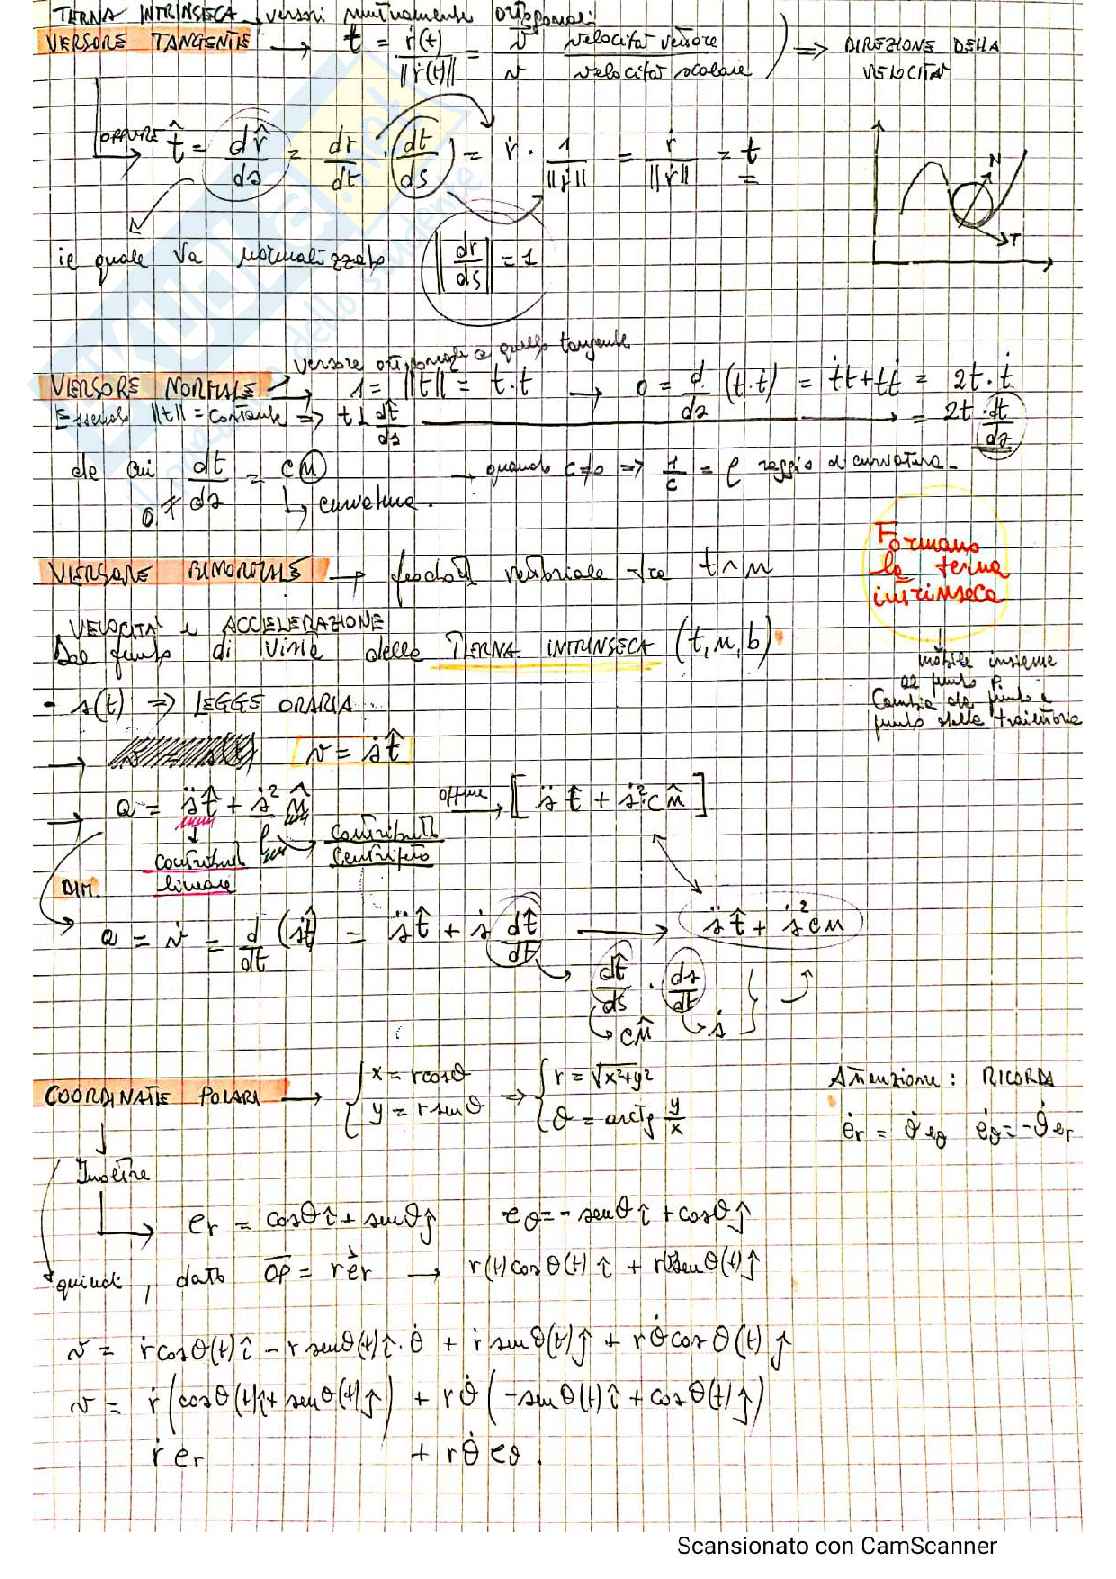 TERNA INTRINSECA versori mutuamente ortogonali
VERSORE TANGENTE → t = ṙ(t)/||ṙ(t)|| = v̄/v velocità versore/velocità scalare ) ⇒ DIREZIONE DELLA VELOCITÀ
OPPURE t̂ = dr̂/ds = dr/dt · (dt/ds) = ṙ · 1/||ṙ|| = ṙ/||ṙ|| = t
N
T
il quale va normalizzato ||dr/ds|| = 1
VERSORE NORMALE → versore ortogonale a quello tangente
1 = ||t|| = t·t → 0 = d/ds (t·t) = ṫt + tṫ = 2t·ṫ
Essendo ||t|| = costante ⇒ t ⊥ dt̂/ds → = 2t · dt/ds
da cui dt/ds = cn → quando c≠0 ⇒ 1/c = ρ raggio di curvatura
0 ≠ ↳ curvatura.
Formano la terna intrinseca
VERSORE BINORMALE → prodotto vettoriale tra t∧n
VELOCITÀ e ACCELERAZIONE
Dal punto di vista della TERNA INTRINSECA (t, n, b)
mobile insieme
al punto P.
Cambia da punto a
punto della traiettoria
- s(t) ⇒ LEGGE ORARIA
→ v = ṡt̂
→ a = s̈t̂ + ṡ²/ρ n̂ oppure → [s̈t̂ + ṡ²cn̂]
contributo lineare
contributo centripeto
DIM.
a = v̇ = d/dt (ṡt̂) = s̈t̂ + ṡ dt̂/dt → s̈t̂ + ṡ²cn
dt̂/ds · ds/dt
↳ cn̂ ↳ ṡ
COORDINATE POLARI → { x = r cosθ y = r senθ ⇒ { r = √x²+y² θ = arctg y/x
Attenzione: RICORDA
ėr = θ̇ eθ ėθ = -θ̇ er
Inoltre
er = cosθ î + senθ ĵ eθ = - senθ î + cosθ ĵ
quindi, dato OP = r er → r(t)cosθ(t) î + r(t)senθ(t) ĵ
v = ṙcosθ(t) î - r senθ(t) î · θ̇ + ṙ senθ(t) ĵ + rθ̇ cosθ(t) ĵ
v = ṙ (cosθ(t) î + senθ(t) ĵ) + rθ̇ (-senθ(t) î + cosθ(t) ĵ)
ṙ er + rθ̇ eθ.
Scansionato con CamScanner